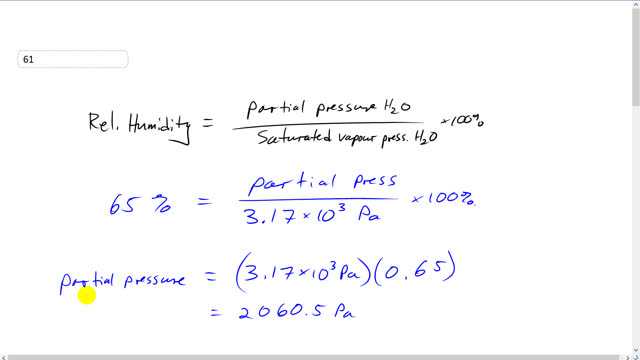 61
Rel. Humidity = partial pressure H₂O / Saturated vapour press. H₂O × 100%
65 % = partial press / 3.17 × 10³ Pa × 100%
partial pressure = (3.17 × 10³ Pa)(0.65)
= 2060.5 Pa